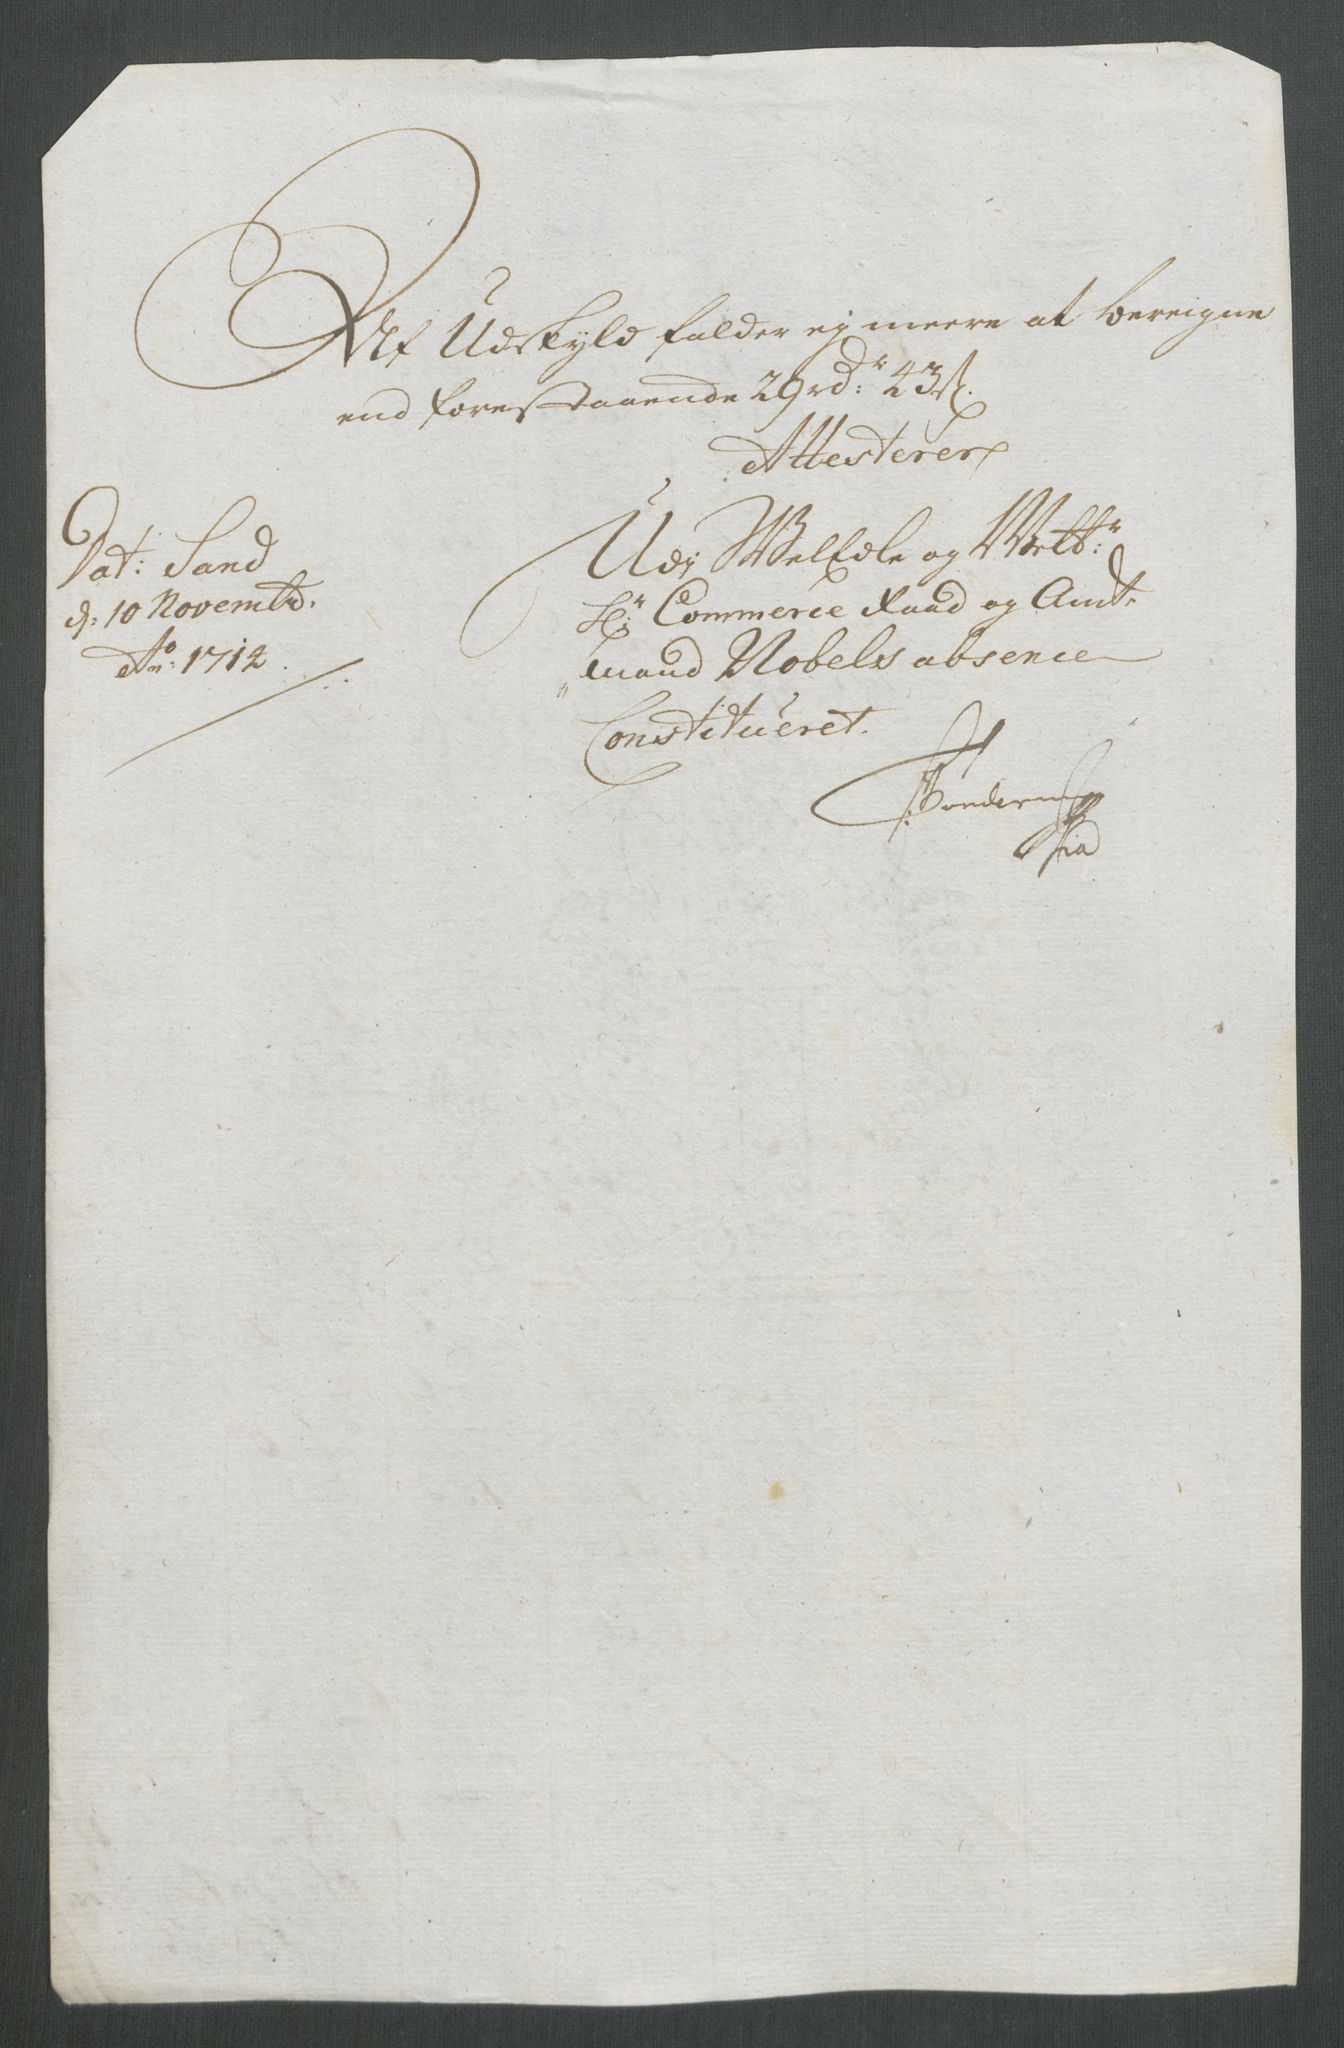 Af Udskyld falder ej meere at bereigne
end forestaaende 29 rd:r 43 s.
Attesterer
Dat: Sand
d: 10 Novembr.
Ao: 1712
Udj WelEdle og Welb:r
Hr: Commerce Raad og Amt-
mand Nobels absence
Constitueret.